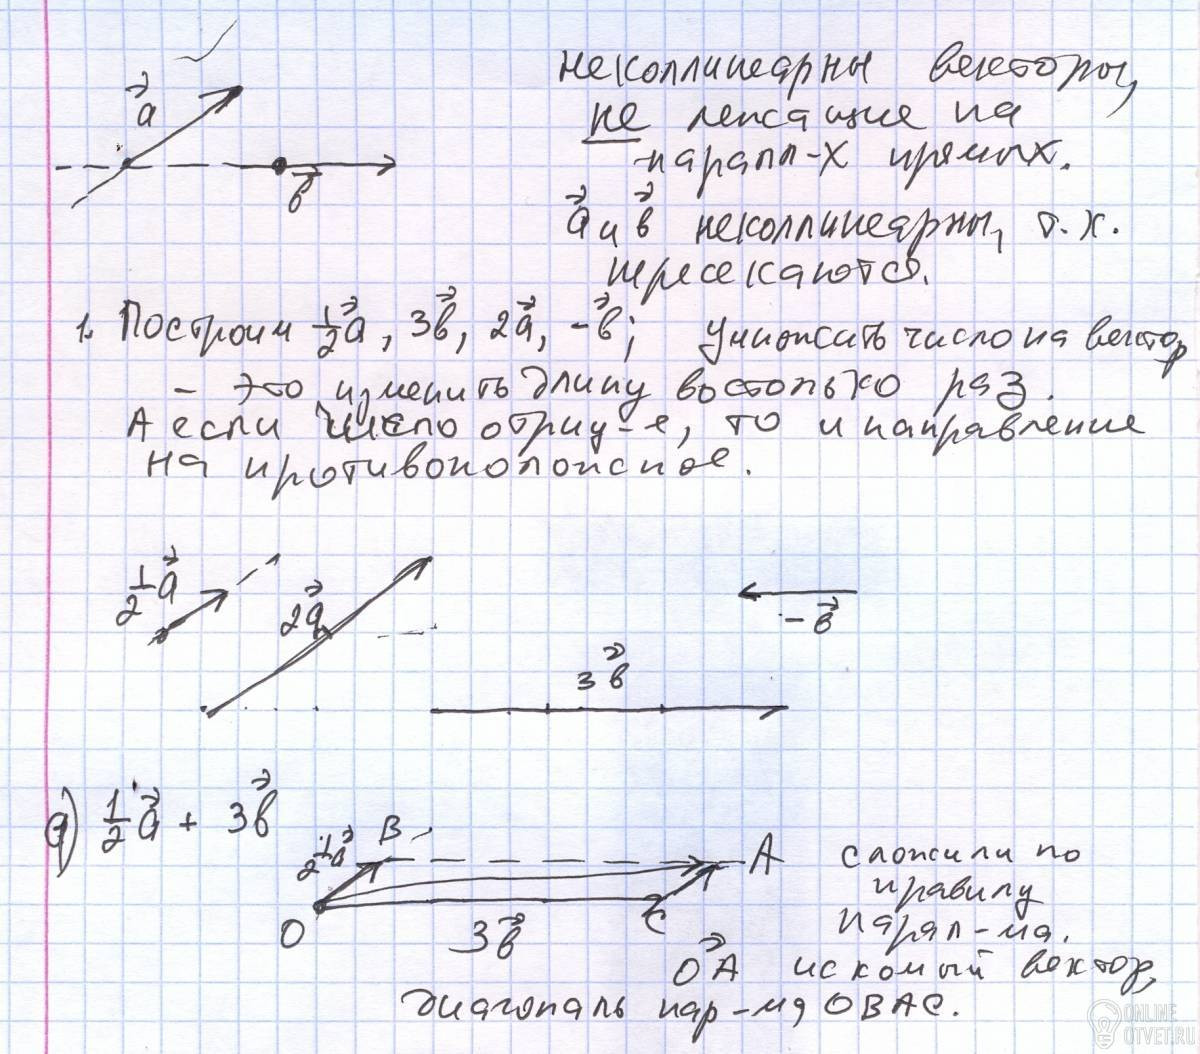 a⃗
в⃗
неколлинеарны векторы,
не лежащие на
паралл-х прямых.
a⃗ и в⃗ неколлинеарны, т.к.
пересекаются.
1. Построим 1/2 a⃗, 3в⃗, 2a⃗, -в⃗; Умножить число на вектор
- это изменить длину востолько раз.
А если число отриц-е, то и направление
на противоположное.
1/2 a⃗
2a⃗
-в⃗
3в⃗
а) 1/2 a⃗ + 3в⃗
1/2 a⃗
B
A
O
3в⃗
C
сложили по
правилу
парал-ма.
OA⃗ искомый вектор,
диагональ пар-ма OBAC.
ONLINE
OTVET.RU